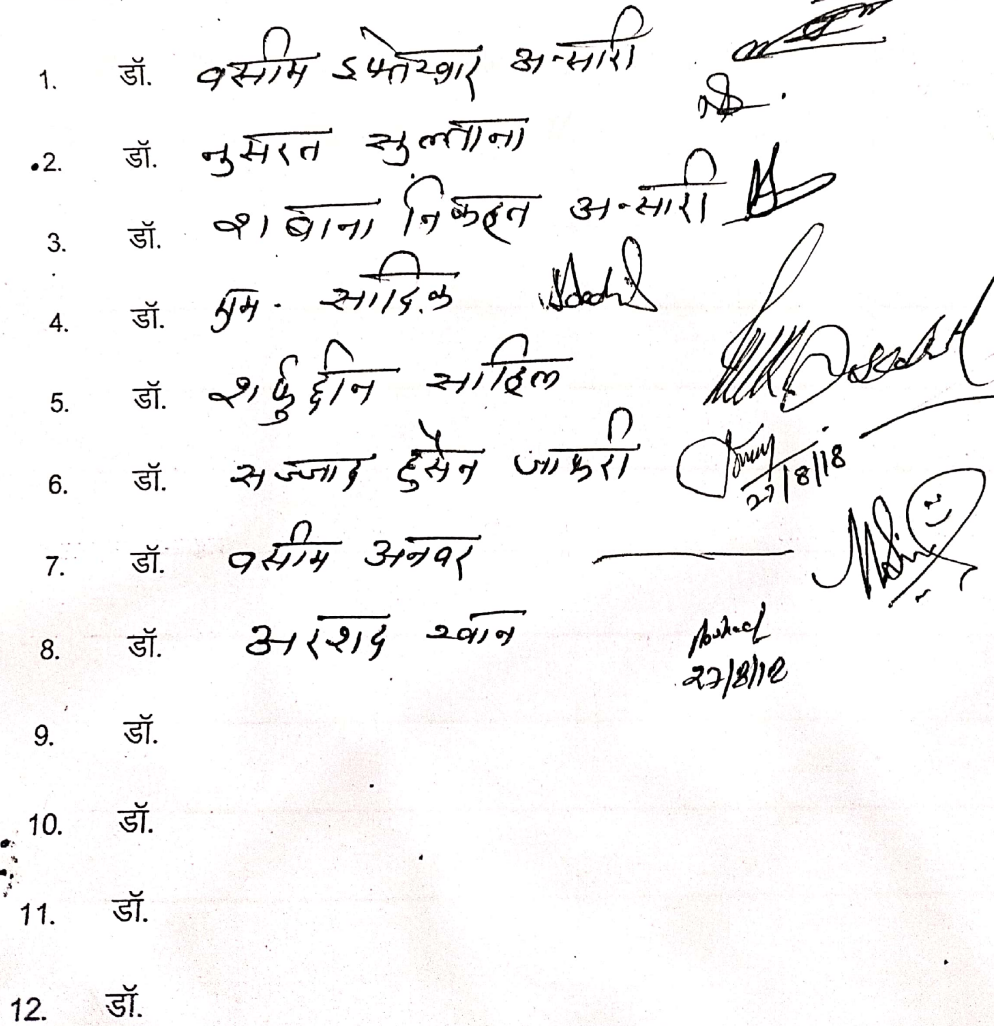 1. डॉ. वसीम इफ्तेखार अन्सारी
2. डॉ. नुसरत सुल्ताना
3. डॉ. शबाना निकहत अन्सारी
4. डॉ. एम. सादिक
5. डॉ. शर्फुद्दीन साहिल
6. डॉ. सज्जाद हुसैन जाफरी
27/8/18
7. डॉ. वसीम अनवर
8. डॉ. अरशद खान
27/8/18
9. डॉ.
10. डॉ.
11. डॉ.
12. डॉ.